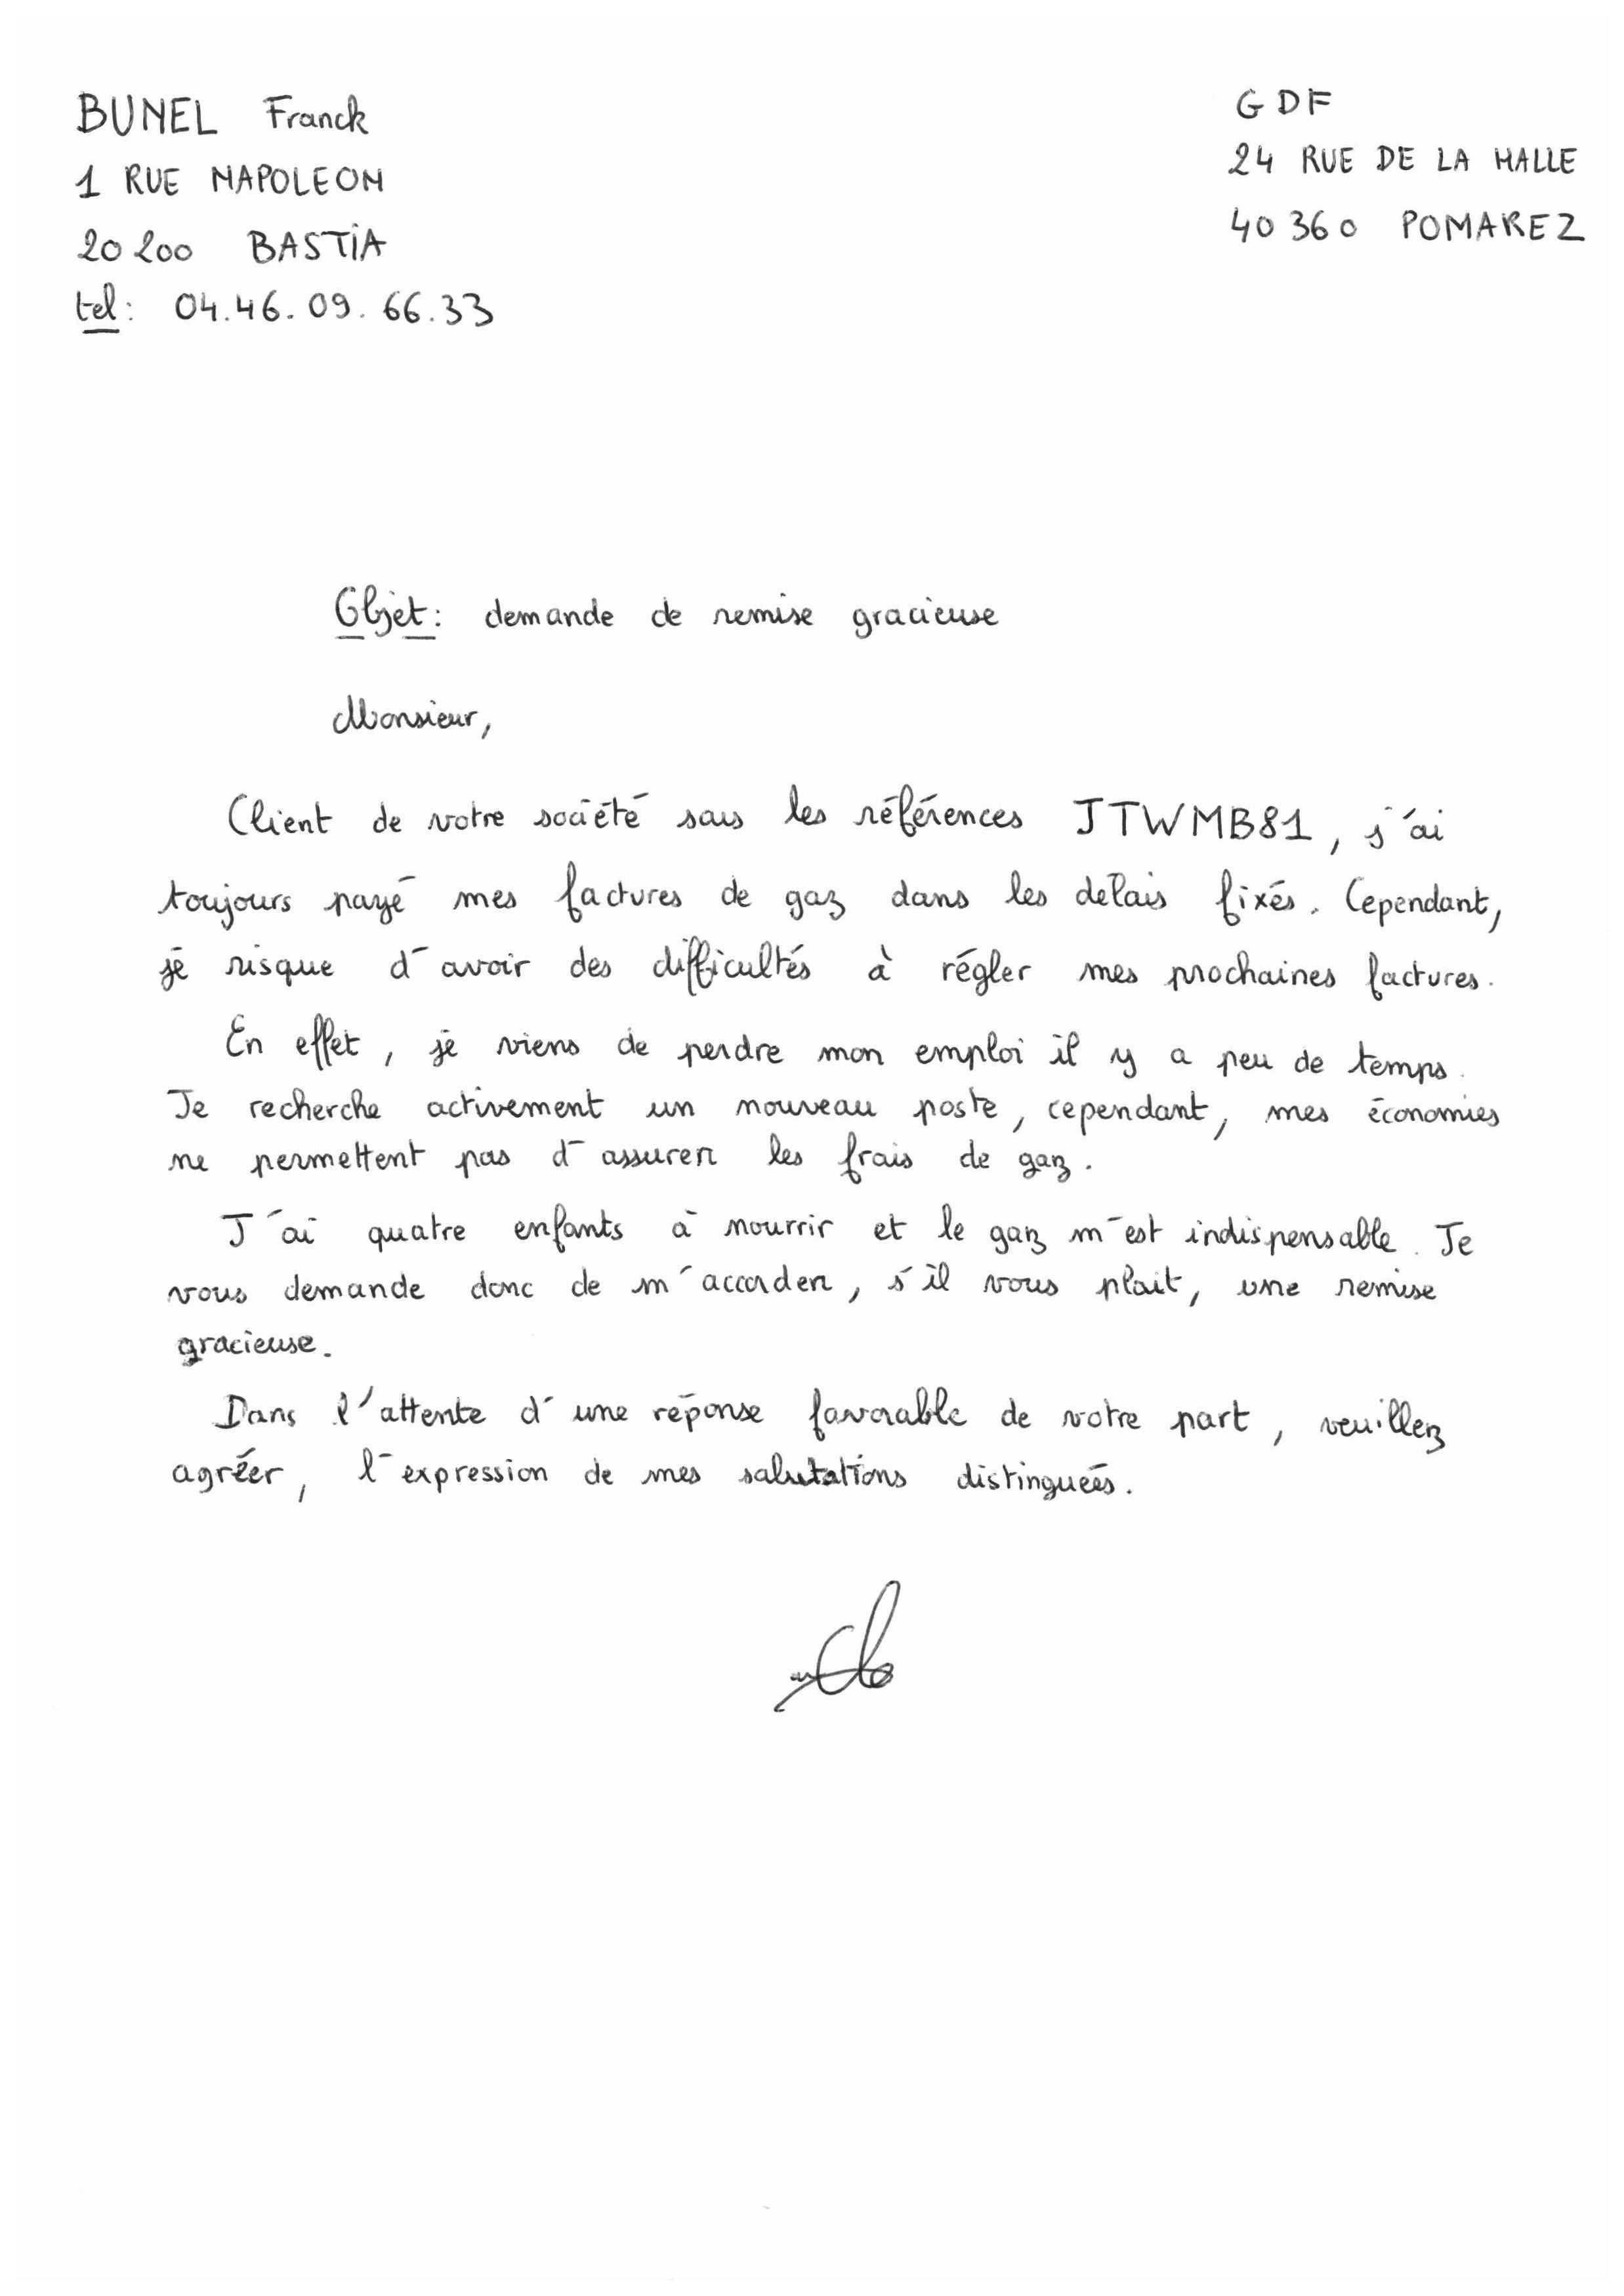 BUNEL Franck
1 RUE NAPOLEON
20 200 BASTIA
tel: 04.46.09.66.33
GDF
24 RUE DE LA HALLE
40 360 POMAREZ
Objet: demande de remise gracieuse
Monsieur,
Client de votre société sous les références JTWMB81, j'ai
toujours payé mes factures de gaz dans les délais fixés. Cependant,
je risque d'avoir des difficultés à régler mes prochaines factures.
En effet, je viens de perdre mon emploi il y a peu de temps.
Je recherche activement un nouveau poste, cependant, mes économies
ne permettent pas d'assurer les frais de gaz.
J'ai quatre enfants à nourrir et le gaz m'est indispensable. Je
vous demande donc de m'accorder, s'il vous plait, une remise
gracieuse.
Dans l'attente d'une réponse favorable de votre part, veuillez
agréer, l'expression de mes salutations distinguées.